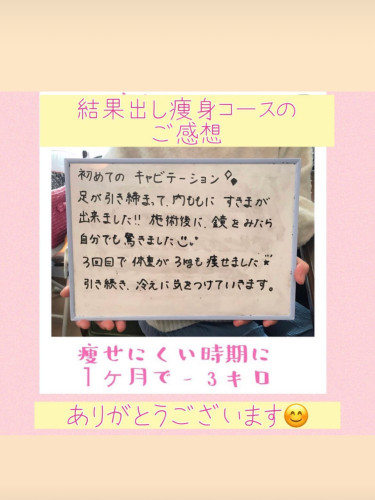 結果出し痩身コースの
ご感想
初めての キャビテーション
足が引き締まって、内ももに すきまが
出来ました!! 施術後に、鏡をみたら
自分でも驚きました
3回目で 体重が 3kgも痩せました
引き続き、冷えに気をつけていきます。
痩せにくい時期に
1ヶ月で-3キロ
ありがとうございます😊